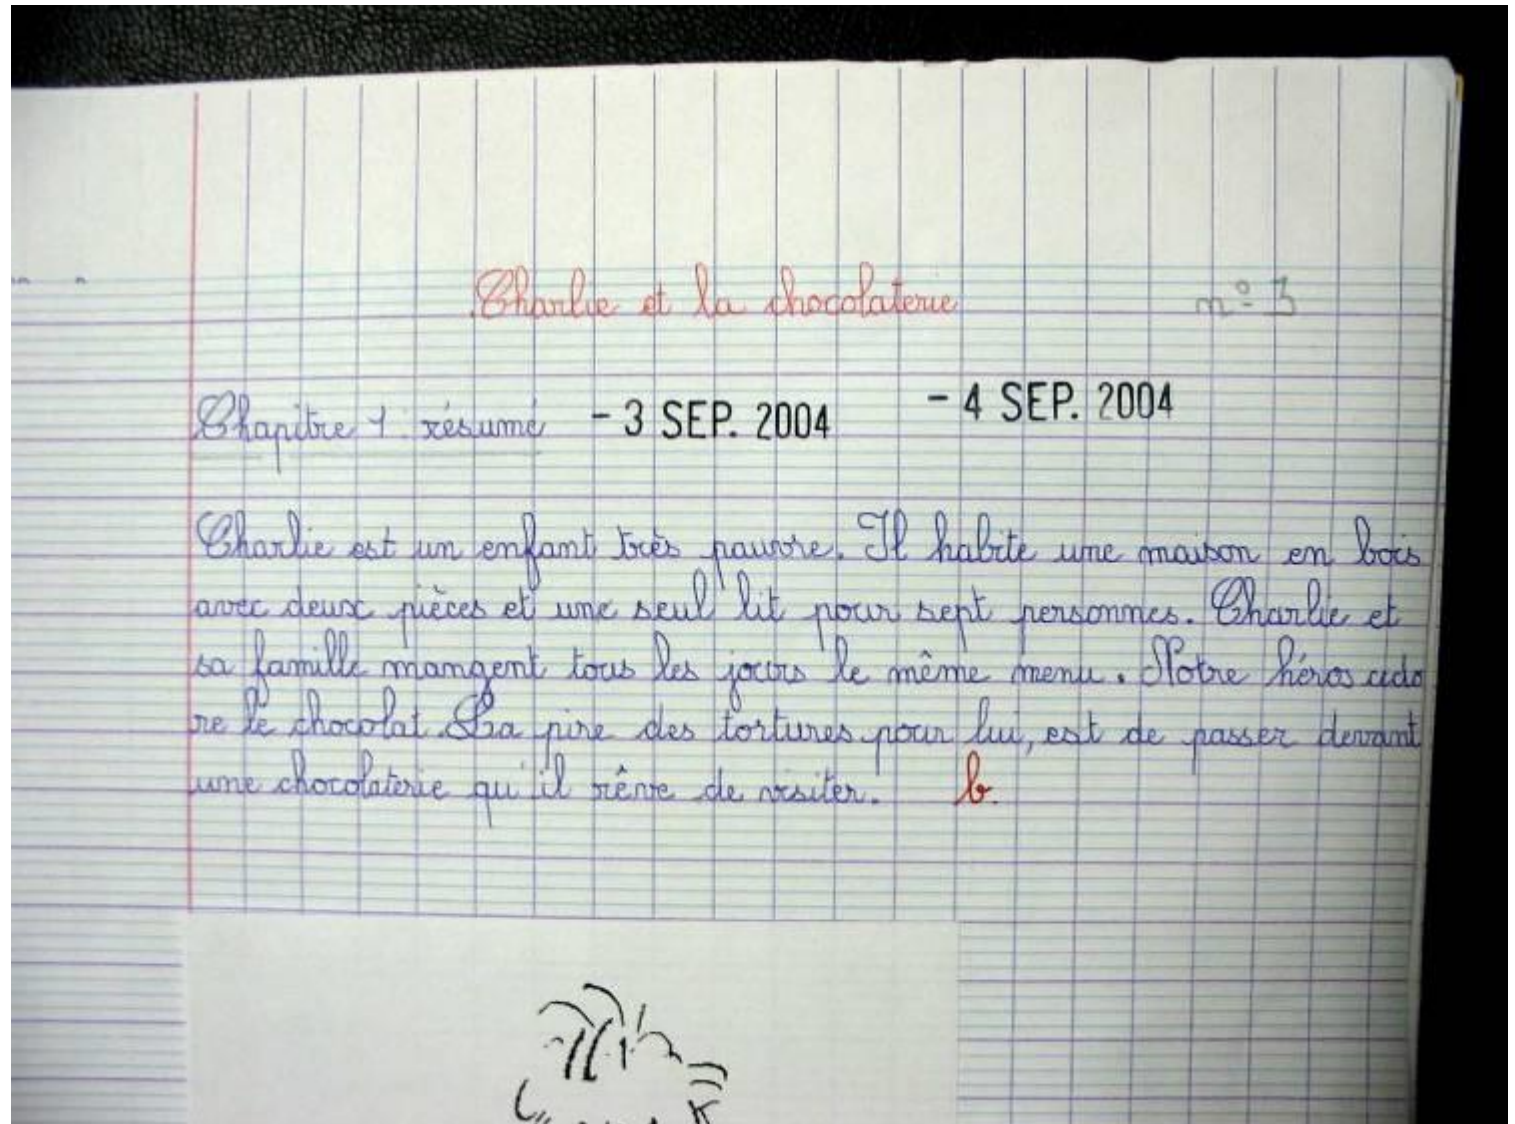 Charlie et la chocolaterie n° 3
Chapitre 1 : résumé - 3 SEP. 2004 - 4 SEP. 2004
Charlie est un enfant très pauvre. Il habite une maison en bois
avec deux pièces et une seul lit pour sept personnes. Charlie et
sa famille mangent tous les jours le même menu. Notre héros ado
re le chocolat. La pire des tortures pour lui, est de passer devant
une chocolaterie qu'il rêve de visiter. b.